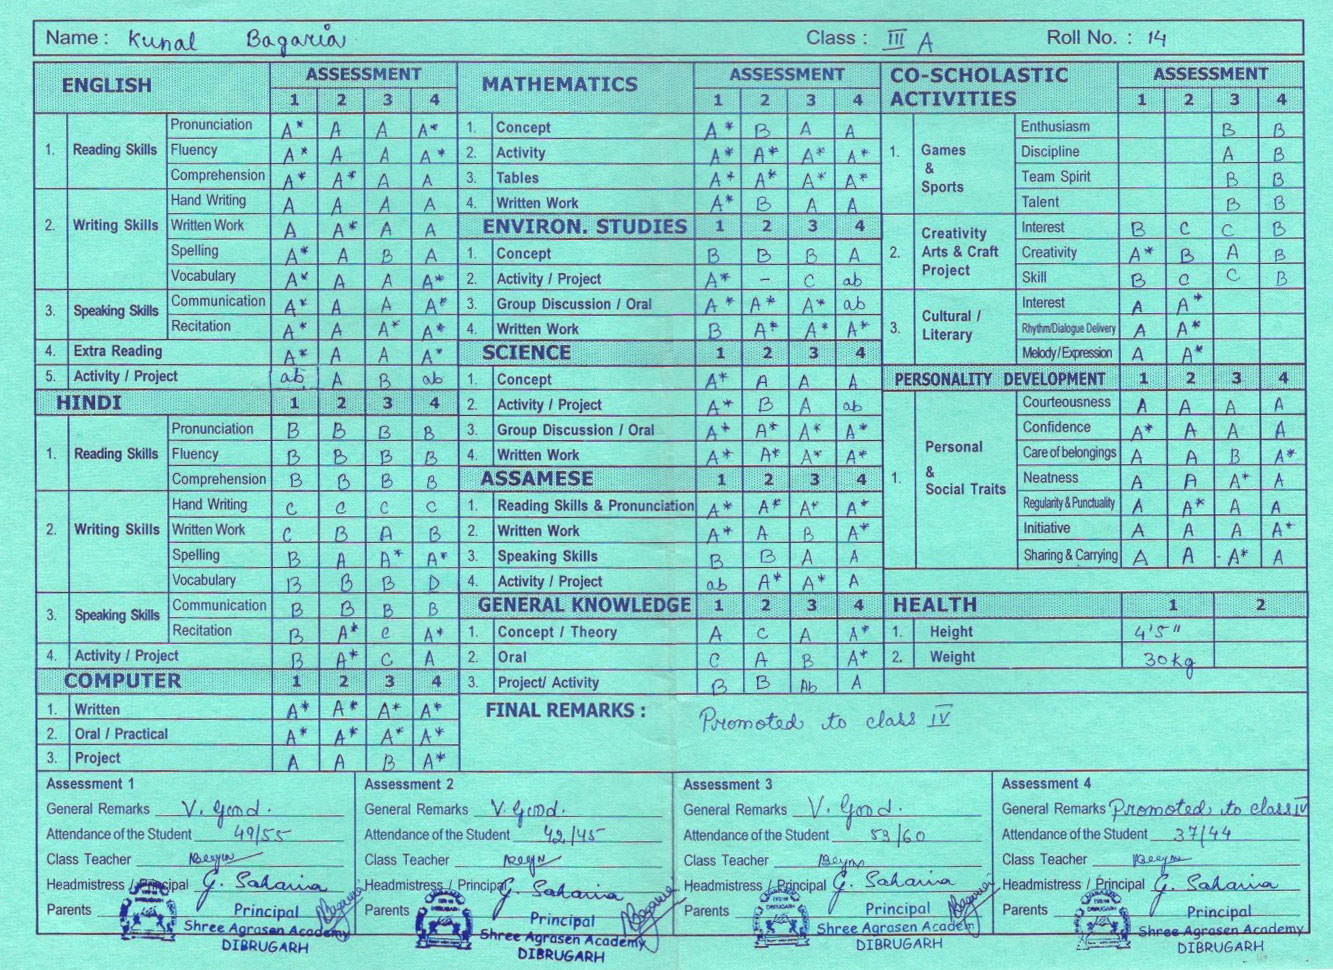 Name : Kunal Bagaria Class : III A Roll No. : 14
ENGLISH ASSESSMENT
1 2 3 4
1. Reading Skills Pronunciation A* A A A*
Fluency A* A A A*
Comprehension A* A* A A
2. Writing Skills Hand Writing A A A A
Written Work A A* A A
Spelling A* A B A
Vocabulary A* A A A*
3. Speaking Skills Communication A* A A A*
Recitation A* A A* A*
4. Extra Reading A* A A A*
5. Activity / Project ab A B ab
HINDI 1 2 3 4
1. Reading Skills Pronunciation B B B B
Fluency B B B B
Comprehension B B B B
2. Writing Skills Hand Writing C C C C
Written Work C B A B
Spelling B A A* A*
Vocabulary B B B D
3. Speaking Skills Communication B B B B
Recitation B A* C A*
4. Activity / Project B A* C A
COMPUTER 1 2 3 4
1. Written A* A* A* A*
2. Oral / Practical A* A* A* A*
3. Project A A B A*
MATHEMATICS ASSESSMENT
1 2 3 4
1. Concept A* B A A
2. Activity A* A* A* A*
3. Tables A* A* A* A*
4. Written Work A* B A A
ENVIRON. STUDIES 1 2 3 4
1. Concept B B B A
2. Activity / Project A* - C ab
3. Group Discussion / Oral A* A* A* ab
4. Written Work B A* A* A*
SCIENCE 1 2 3 4
1. Concept A* A A A
2. Activity / Project A* B A ab
3. Group Discussion / Oral A* A* A* A*
4. Written Work A* A* A* A*
ASSAMESE 1 2 3 4
1. Reading Skills & Pronunciation A* A* A* A*
2. Written Work A* A B A*
3. Speaking Skills B B A A
4. Activity / Project ab A* A* A
GENERAL KNOWLEDGE 1 2 3 4
1. Concept / Theory A C A A*
2. Oral C A B A*
3. Project/ Activity B B Ab A
FINAL REMARKS : Promoted to class IV
CO-SCHOLASTIC ACTIVITIES ASSESSMENT
1 2 3 4
1. Games & Sports Enthusiasm B B
Discipline A B
Team Spirit B B
Talent B B
2. Creativity Arts & Craft Project Interest B C C B
Creativity A* B A B
Skill B C C B
3. Cultural / Literary Interest A A*
Rhythm/Dialogue Delivery A A*
Melody/Expression A A*
PERSONALITY DEVELOPMENT 1 2 3 4
1. Personal & Social Traits Courteousness A A A A
Confidence A* A A A
Care of belongings A A B A*
Neatness A A A* A
Regularity & Punctuality A A* A A
Initiative A A A A*
Sharing & Carrying A A A* A
HEALTH 1 2
1. Height 4'5"
2. Weight 30 kg
Assessment 1
General Remarks V. Good.
Attendance of the Student 49/55
Class Teacher
Headmistress / Principal G. Saharia
Parents
Principal
Shree Agrasen Academy
DIBRUGARH
Assessment 2
General Remarks V. Good.
Attendance of the Student 42/45
Class Teacher
Headmistress / Principal G. Saharia
Parents
Principal
Shree Agrasen Academy
DIBRUGARH
Assessment 3
General Remarks V. Good.
Attendance of the Student 53/60
Class Teacher
Headmistress / Principal G. Saharia
Parents
Principal
Shree Agrasen Academy
DIBRUGARH
Assessment 4
General Remarks Promoted to class IV
Attendance of the Student 37/44
Class Teacher
Headmistress / Principal G. Saharia
Parents
Principal
Shree Agrasen Academy
DIBRUGARH